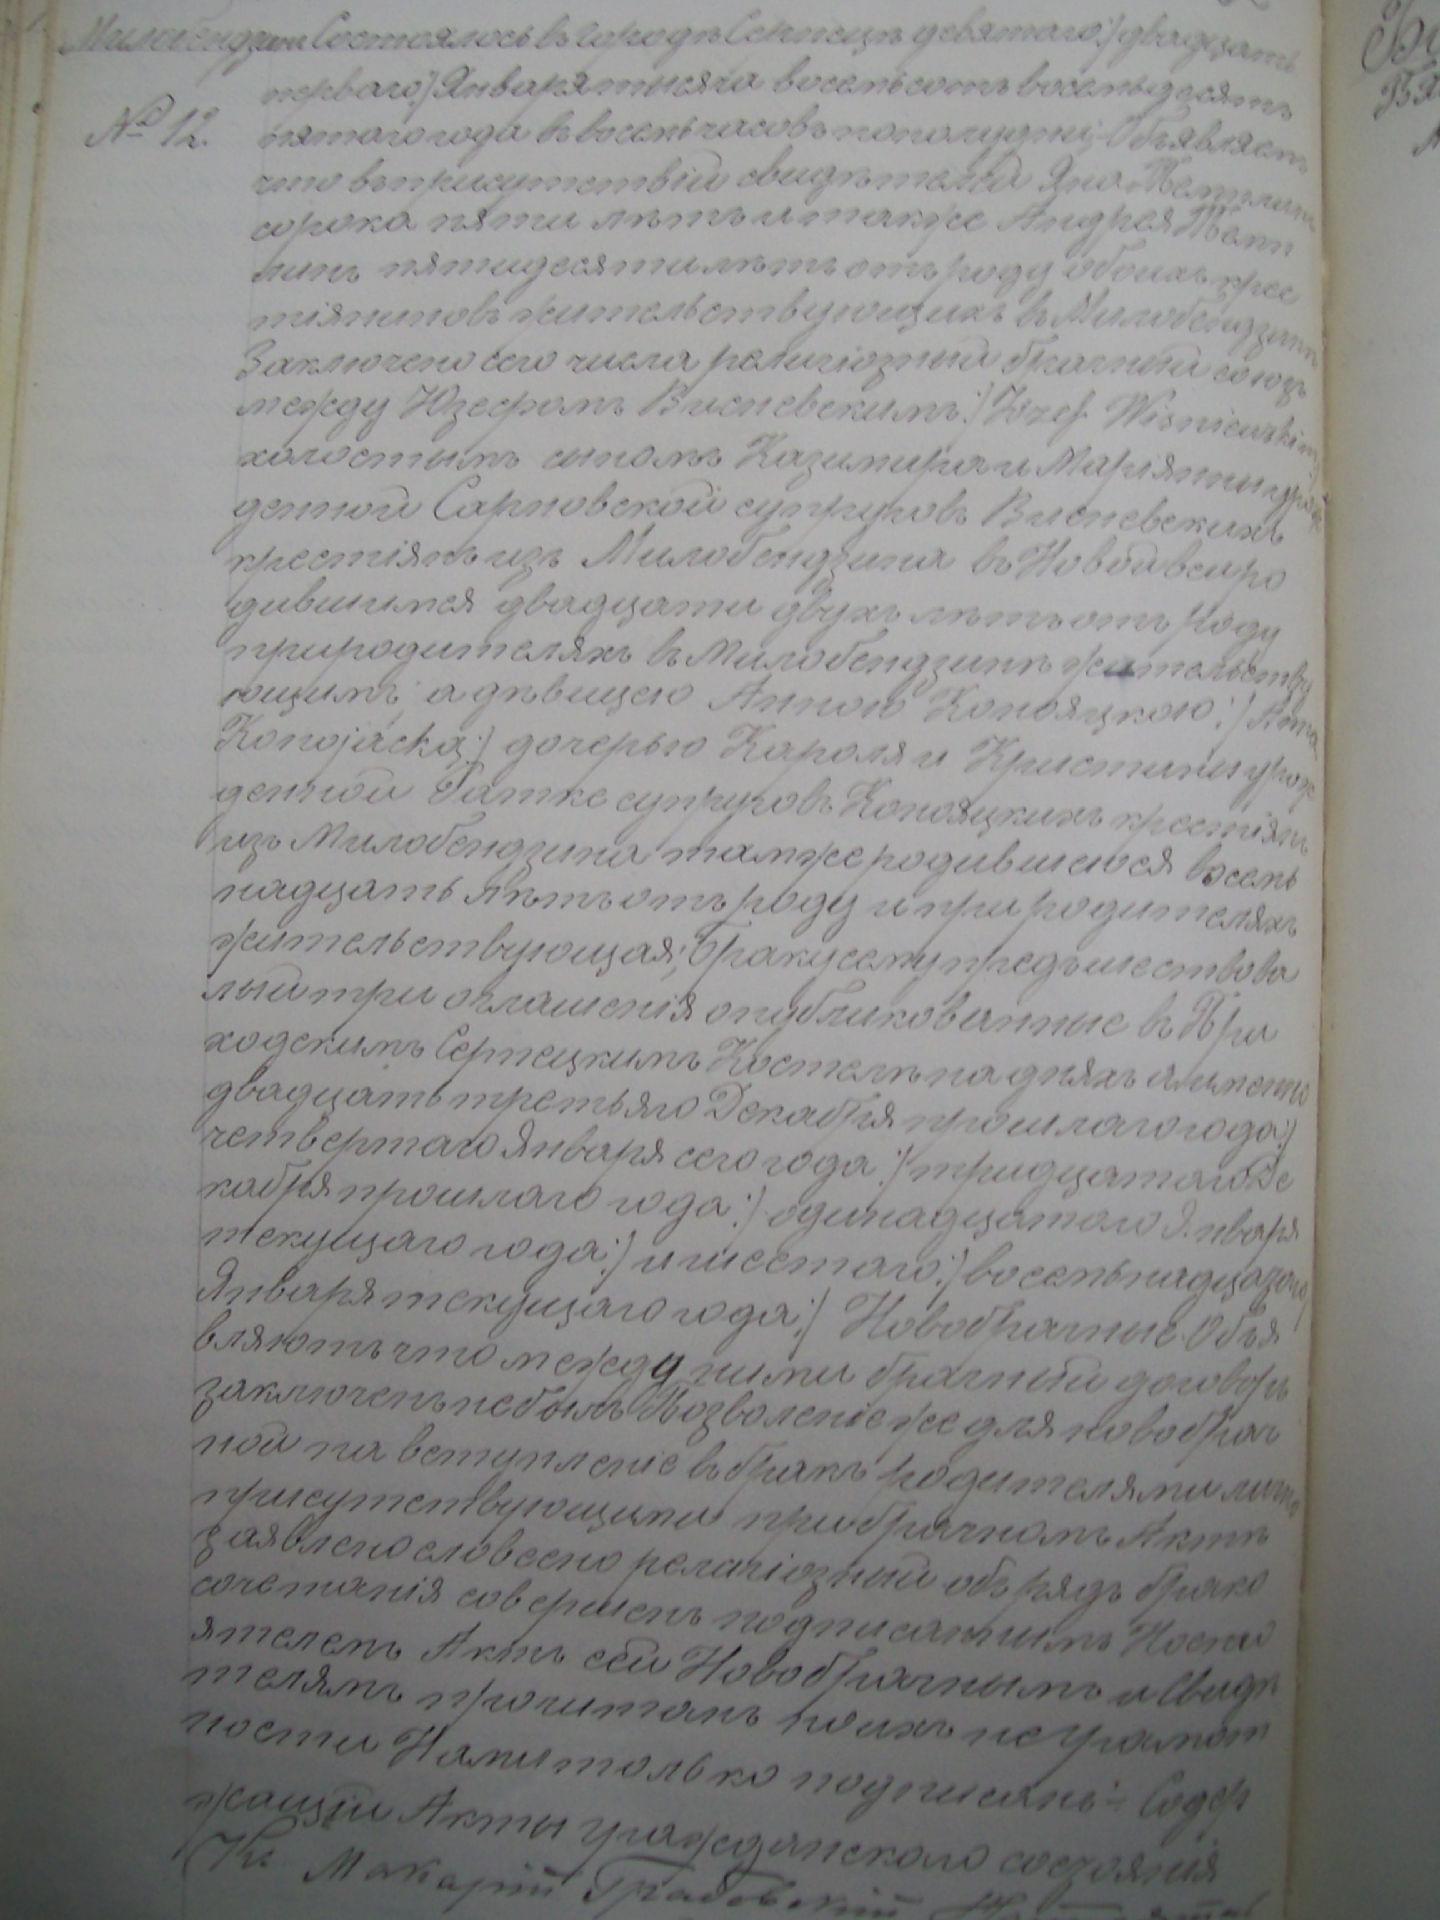 Милобендзин Состоялось въ городѣ Серпецѣ девятаго:/ двадцать
перваго:/ Января тысяча восемьсотъ восемьдесятъ
№ 12.
пятаго года въ восемь часовъ пополудни. Объявляемъ
что въ присутствіи свидѣтелей Яна
сорока пяти лѣтъ и также Андрея
пятидесяти лѣтъ отъ роду обоихъ крес
тіяниновъ жительствующихъ въ Милобендзинѣ
Заключено сего числа религіозный брачный союзъ
между Юзефомъ Висневскимъ:/ Józef Wisniewskim
холостымъ сыномъ Казимира и Маріянны урож
денной Сарновской супруговъ Висневскихъ
крестіянъ изъ Милобендзина въ Новойвси ро
дившимся двадцати двухъ лѣтъ отъ роду
при родителяхъ въ Милобендзинѣ жительству
ющимъ, а дѣвицею Анною Конояцкою:/ Anna
Konojacka:/ дочерью Кароля и Кристины урож
денной Ратке супруговъ Конояцкихъ крестіянъ
изъ Милобендзина тамже родившеюся восемь
надцать лѣтъ отъ роду и при родителяхъ
жительствующая; Браку сему предшествова
лый три оглашенія опубликованные въ При
ходскимъ Серпецкимъ Костелѣ на дняхъ а именно
двадцать третьяго Декабря прошлаго года:/
четвертаго Января сего года:/ тридцатаго Де
кабря прошлаго года:/ одинадцатаго Января
текущаго года:/ и шестаго:/ восемьнадцатаго
Января текущаго года:/ Новобрачные Объя
вляютъ что между ними брачный договоръ
заключенъ не былъ Позволеніе же для новобрач
ной на вступленіе въ бракъ родителями лично
присутствующими при брачномъ Актѣ
заявлено словесно религіозный обрядъ брако
сочетанія совершенъ подписаннымъ Насто
ятелемъ Актъ сей Новобрачнымъ и Свидѣ
телямъ прочитанъ по ихъ неграмот
ности Нами только подписанъ. Содер
жащій Акты гражданскаго состоянія
Кс. Макарій Грабовскій